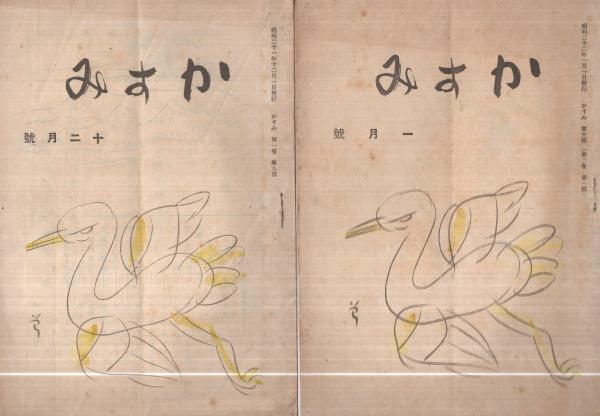 昭和二十一年十二月一日發行 かすみ 第一卷 第九號
かすみ
十二月號
昭和二十二年一月一日發行 かすみ 第十號(第二卷 第一號)
かすみ
一月號